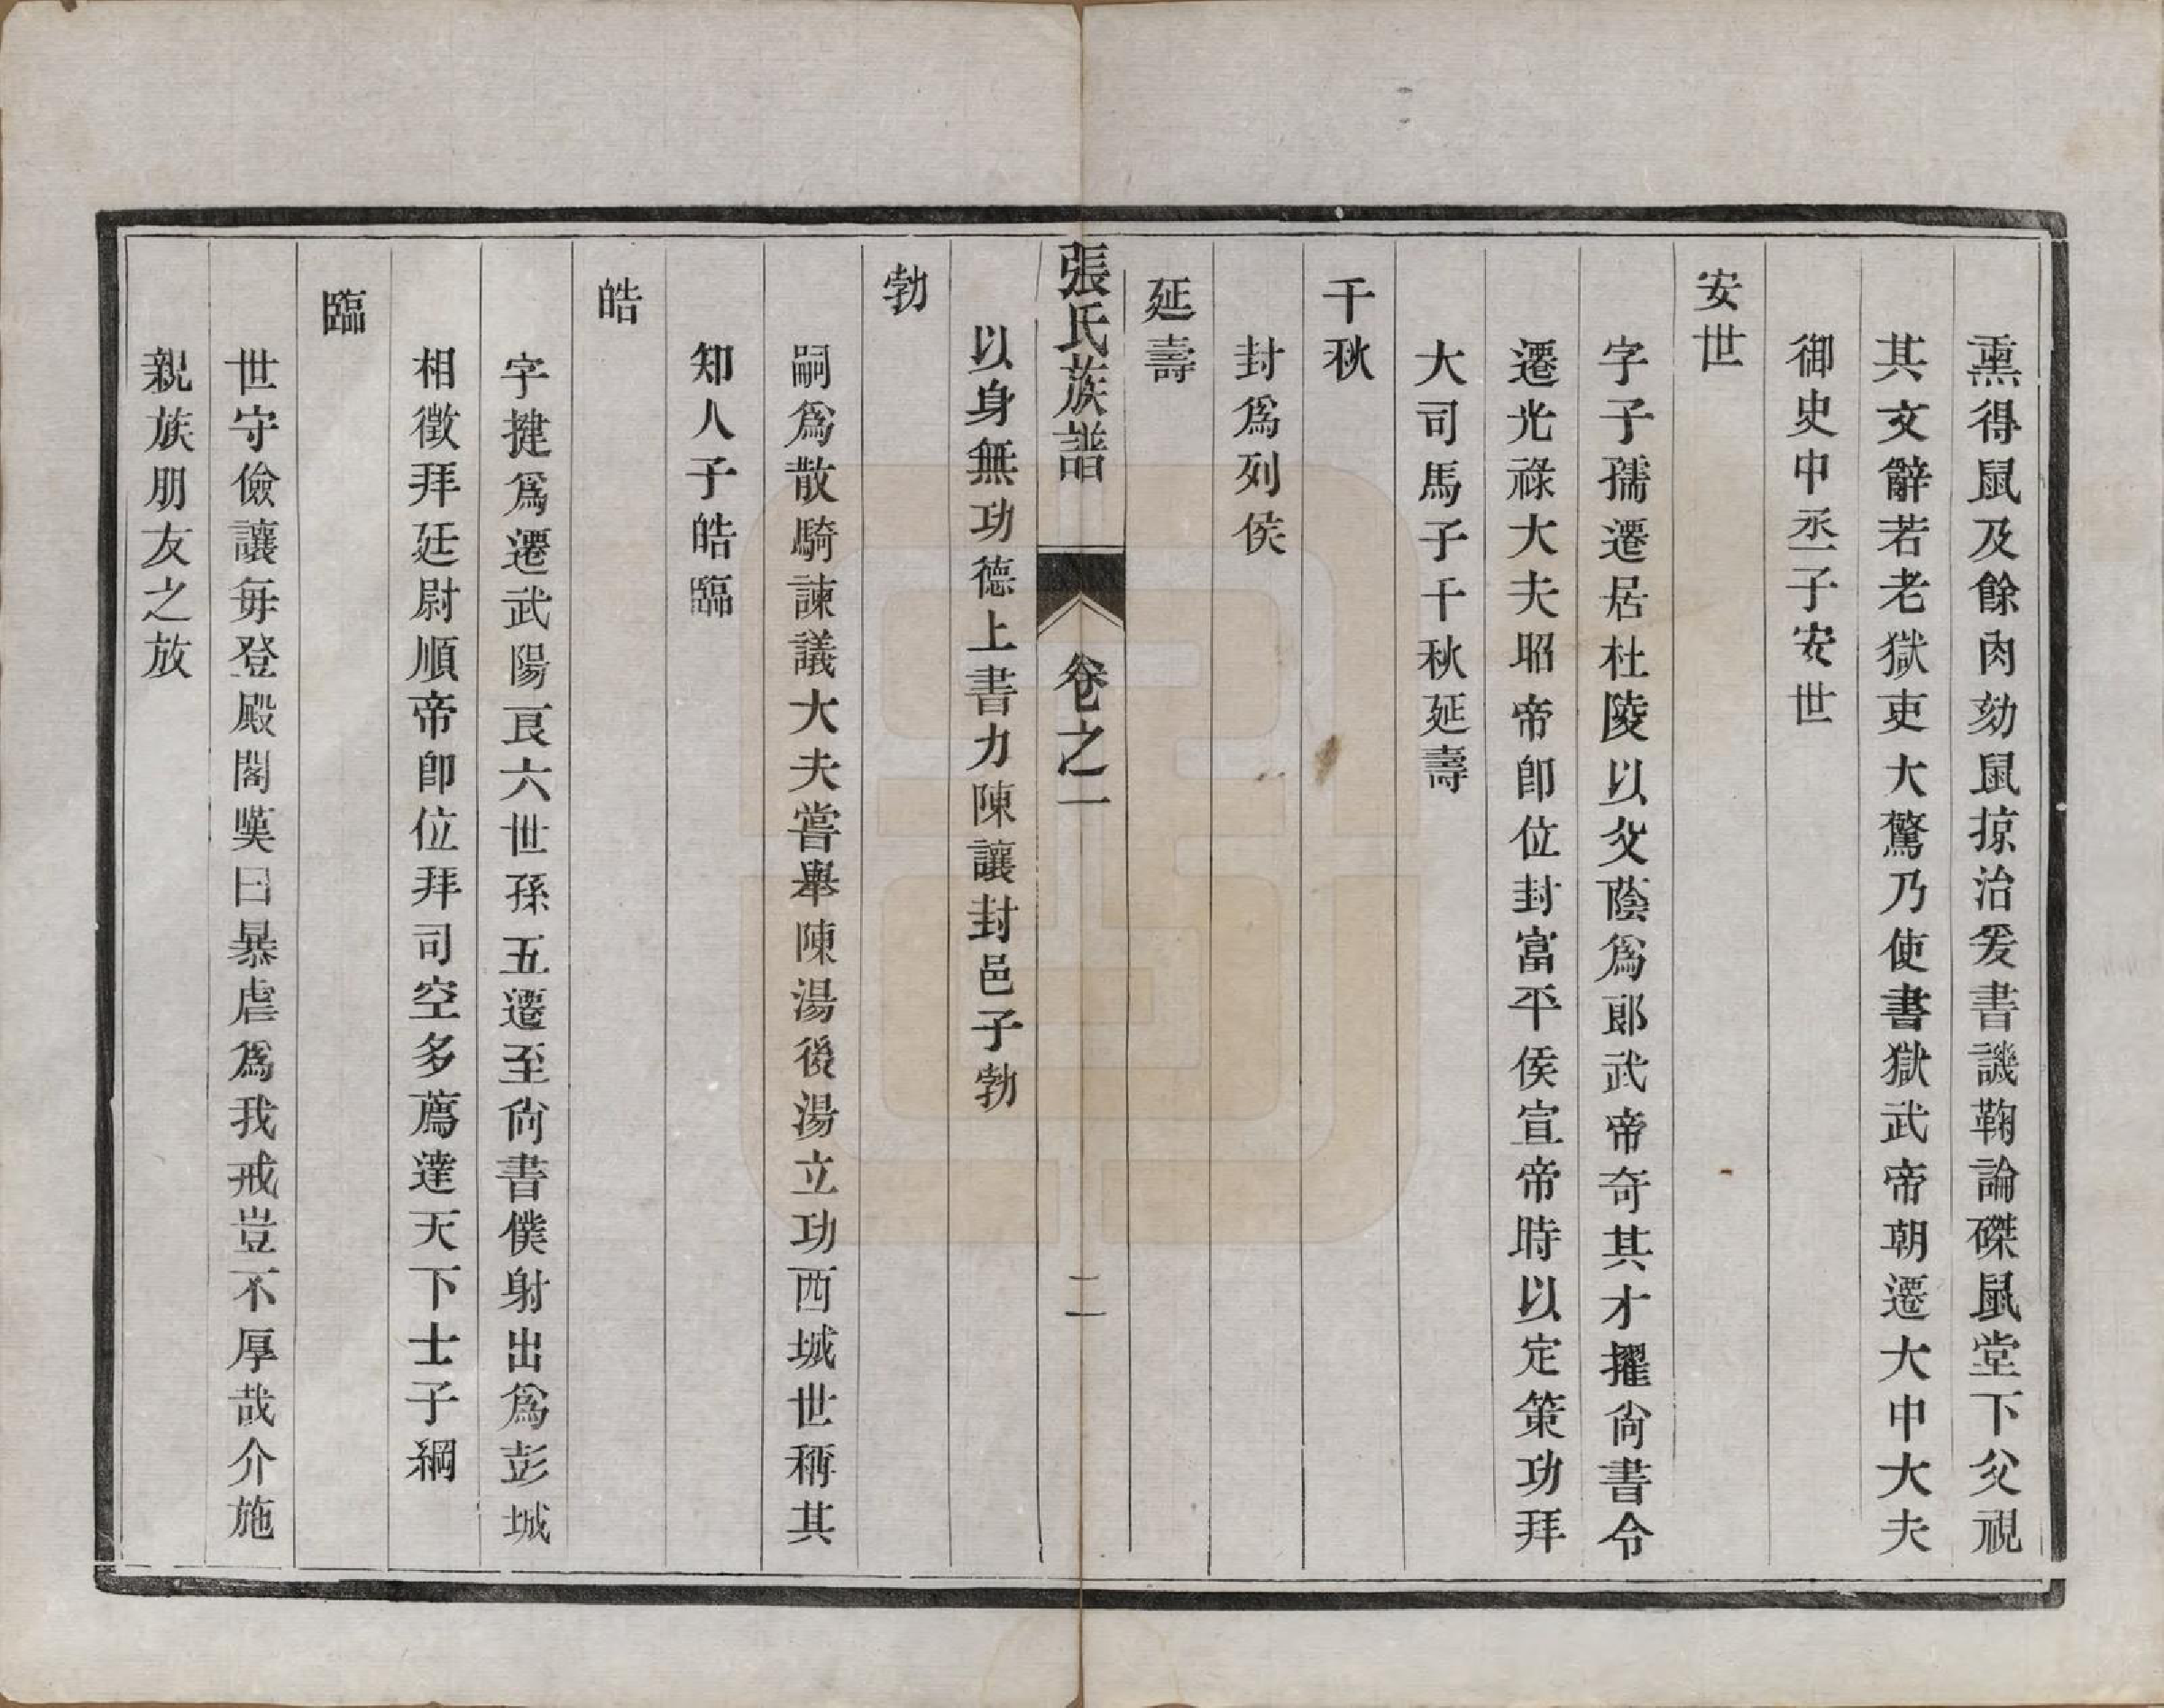 熏得鼠及餘肉劾鼠掠治爰書譏鞫論磔鼠堂下父視
其文辭若老獄吏大驚乃使書獄武帝朝遷大中大夫
御史中丞子安世
安世
字子孺遷居杜陵以父蔭為郎武帝奇其才擢尙書令
遷光祿大夫昭帝卽位封富平侯宣帝時以定策功拜
大司馬子千秋延壽
千秋
封為列侯
延壽
張氏族譜 卷之一 二
以身無功德上書力陳讓封邑子勃
勃
嗣為散騎諫議大夫嘗舉陳湯後湯立功西域世稱其
知人子皓臨
皓
字揵為遷武陽良六世孫五遷至尙書僕射出為彭城
相徵拜廷尉順帝卽位拜司空多薦達天下士子綱
臨
世守儉讓每登殿閣嘆曰暴虐為我戒豈不厚哉介施
親族朋友之放